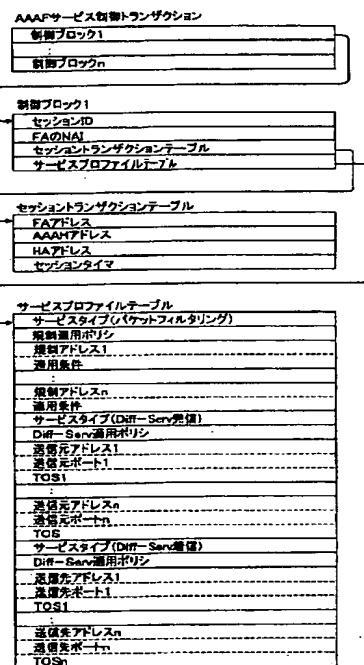 AAAFサービス制御トランザクション
制御ブロック1
:
制御ブロックn
制御ブロック1
セッションID
FAのNAI
セッショントランザクションテーブル
サービスプロファイルテーブル
セッショントランザクションテーブル
FAアドレス
AAAHアドレス
HAアドレス
セッションタイマ
サービスプロファイルテーブル
サービスタイプ(パケットフィルタリング)
規制適用ポリシ
規制アドレス1
適用条件
:
規制アドレスn
適用条件
サービスタイプ(Diff-Serv発信)
Diff-Serv適用ポリシ
送信元アドレス1
送信元ポート1
TOS1
:
送信元アドレスn
送信元ポートn
TOS
サービスタイプ(Diff-Serv着信)
Diff-Serv適用ポリシ
送信先アドレス1
送信先ポート1
TOS1
:
送信先アドレスn
送信先ポートn
TOSn